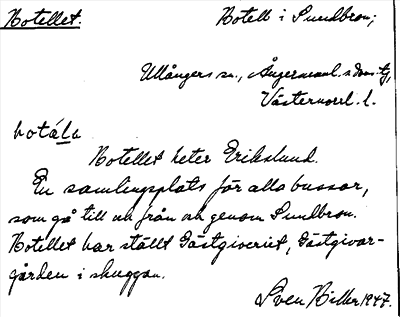 Hotellet.
Hotell i Sundbron;
Ullångers sn., Ångermanl. s. doms.-tg,
Västernorrl. l.
hotä́lạ
Hotellet heter Erikslund.
En samlingsplats för alla bussar,
som gå till och från och genom Sundbron.
Hotellet har ställt Gästgiveriet, Gästgivar-
gården i skuggan.
Sven Biller 1947.